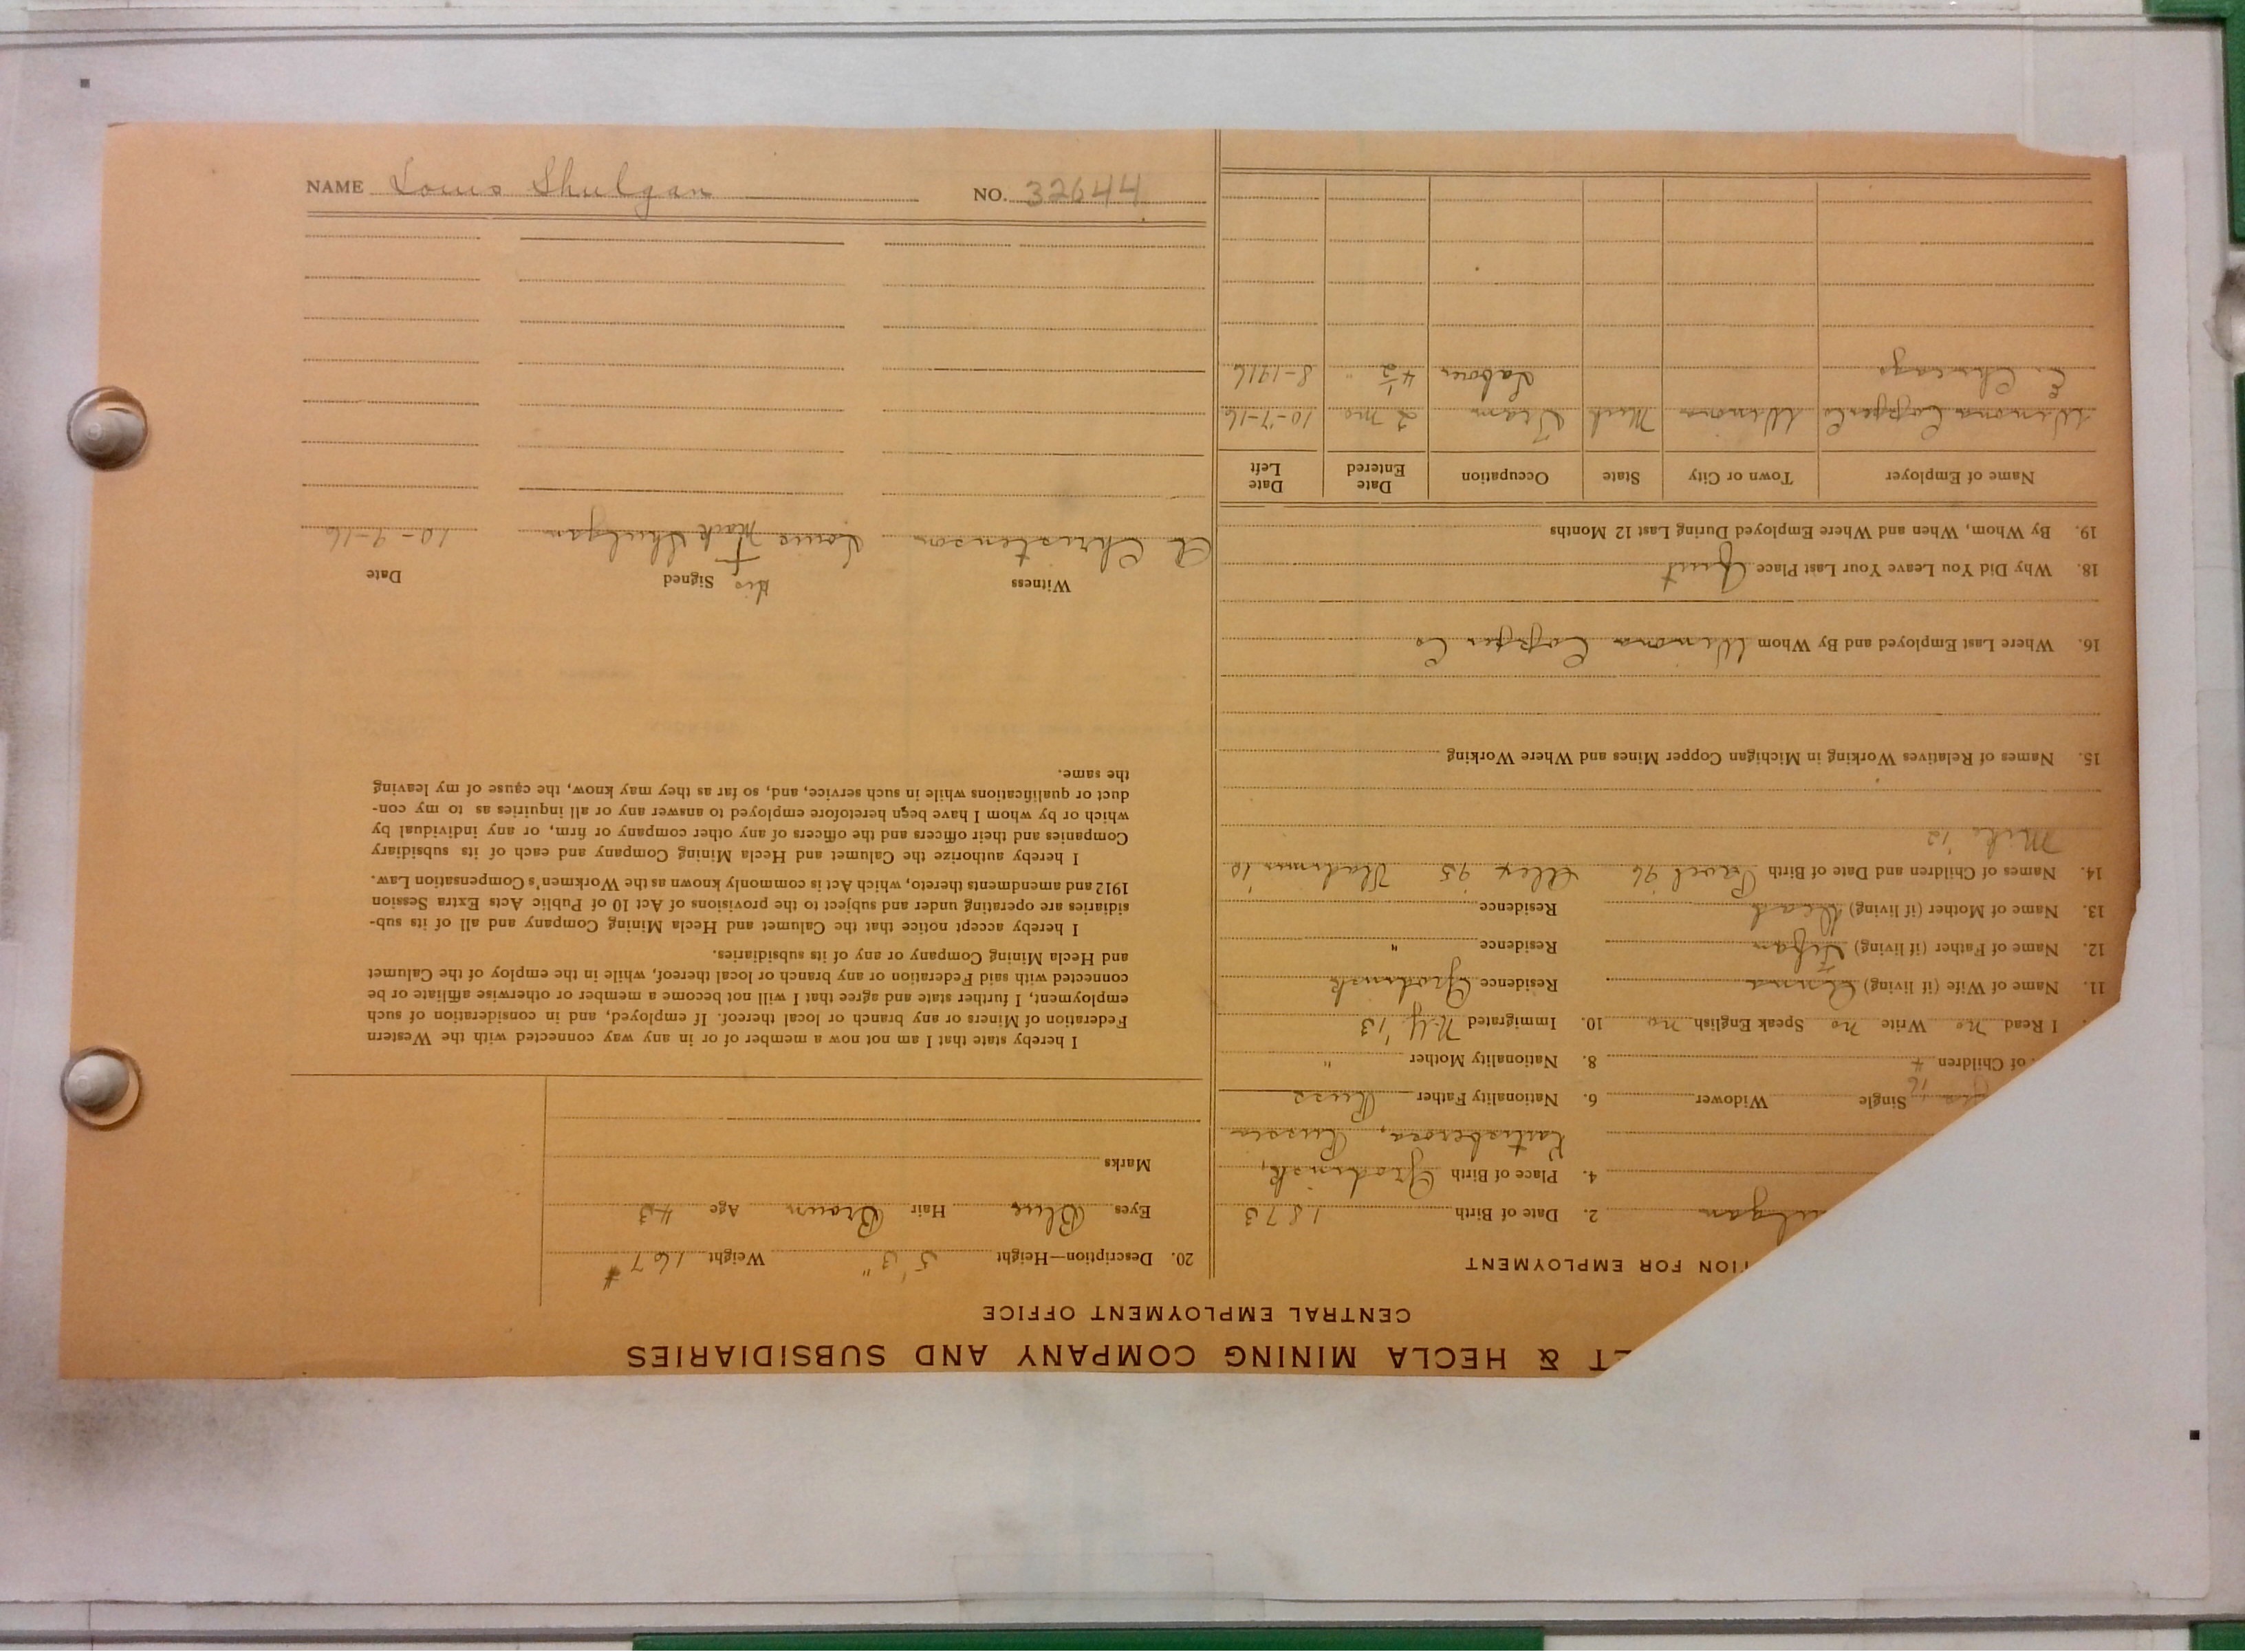 NAME Louis Shulgan NO. 32644
ET & HECLA MINING COMPANY AND SUBSIDIARIES
CENTRAL EMPLOYMENT OFFICE
TION FOR EMPLOYMENT
ulgan 2. Date of Birth 1873
4. Place of Birth Grodinsk,
Russia
Single Widower 6. Nationality Father Russ
of Children 4 8. Nationality Mother "
I Read no Write no Speak English no 10. Immigrated N.Y. '13
11. Name of Wife (if living) Residence Grodinsk
12. Name of Father (if living) Stefan Residence "
13. Name of Mother (if living) Dead Residence
14. Names of Children and Date of Birth Pavel '96 Alex '95 '10
Mike '12
15. Names of Relatives Working in Michigan Copper Mines and Where Working
16. Where Last Employed and By Whom Winona Copper Co
18. Why Did You Leave Your Last Place Quit
19. By Whom, When and Where Employed During Last 12 Months
Name of Employer Town or City State Occupation Date Entered Date Left
Winona Copper Co Winona Mich Tram 2 mo 10-7-16
E. Chicago Labour 4 1/2 " 8-1916
20. Description—Height 5' 3" Weight 167 #
Eyes Blue Hair Brown Age 43
Marks
I hereby state that I am not now a member of or in any way connected with the Western
Federation of Miners or any branch or local thereof. If employed, and in consideration of such
employment, I further state and agree that I will not become a member or otherwise affiliate or be
connected with said Federation or any branch or local thereof, while in the employ of the Calumet
and Hecla Mining Company or any of its subsidiaries.
I hereby accept notice that the Calumet and Hecla Mining Company and all of its sub-
sidiaries are operating under and subject to the provisions of Act 10 of Public Acts Extra Session
1912 and amendments thereto, which Act is commonly known as the Workmen's Compensation Law.
I hereby authorize the Calumet and Hecla Mining Company and each of its subsidiary
Companies and their officers and the officers of any other company or firm, or any individual by
which or by whom I have been heretofore employed to answer any or all inquiries as to my con-
duct or qualifications while in such service, and, so far as they may know, the cause of my leaving
the same.
Witness Signed Date
his
A Christenson Louis + Shulgan 10-9-16
mark